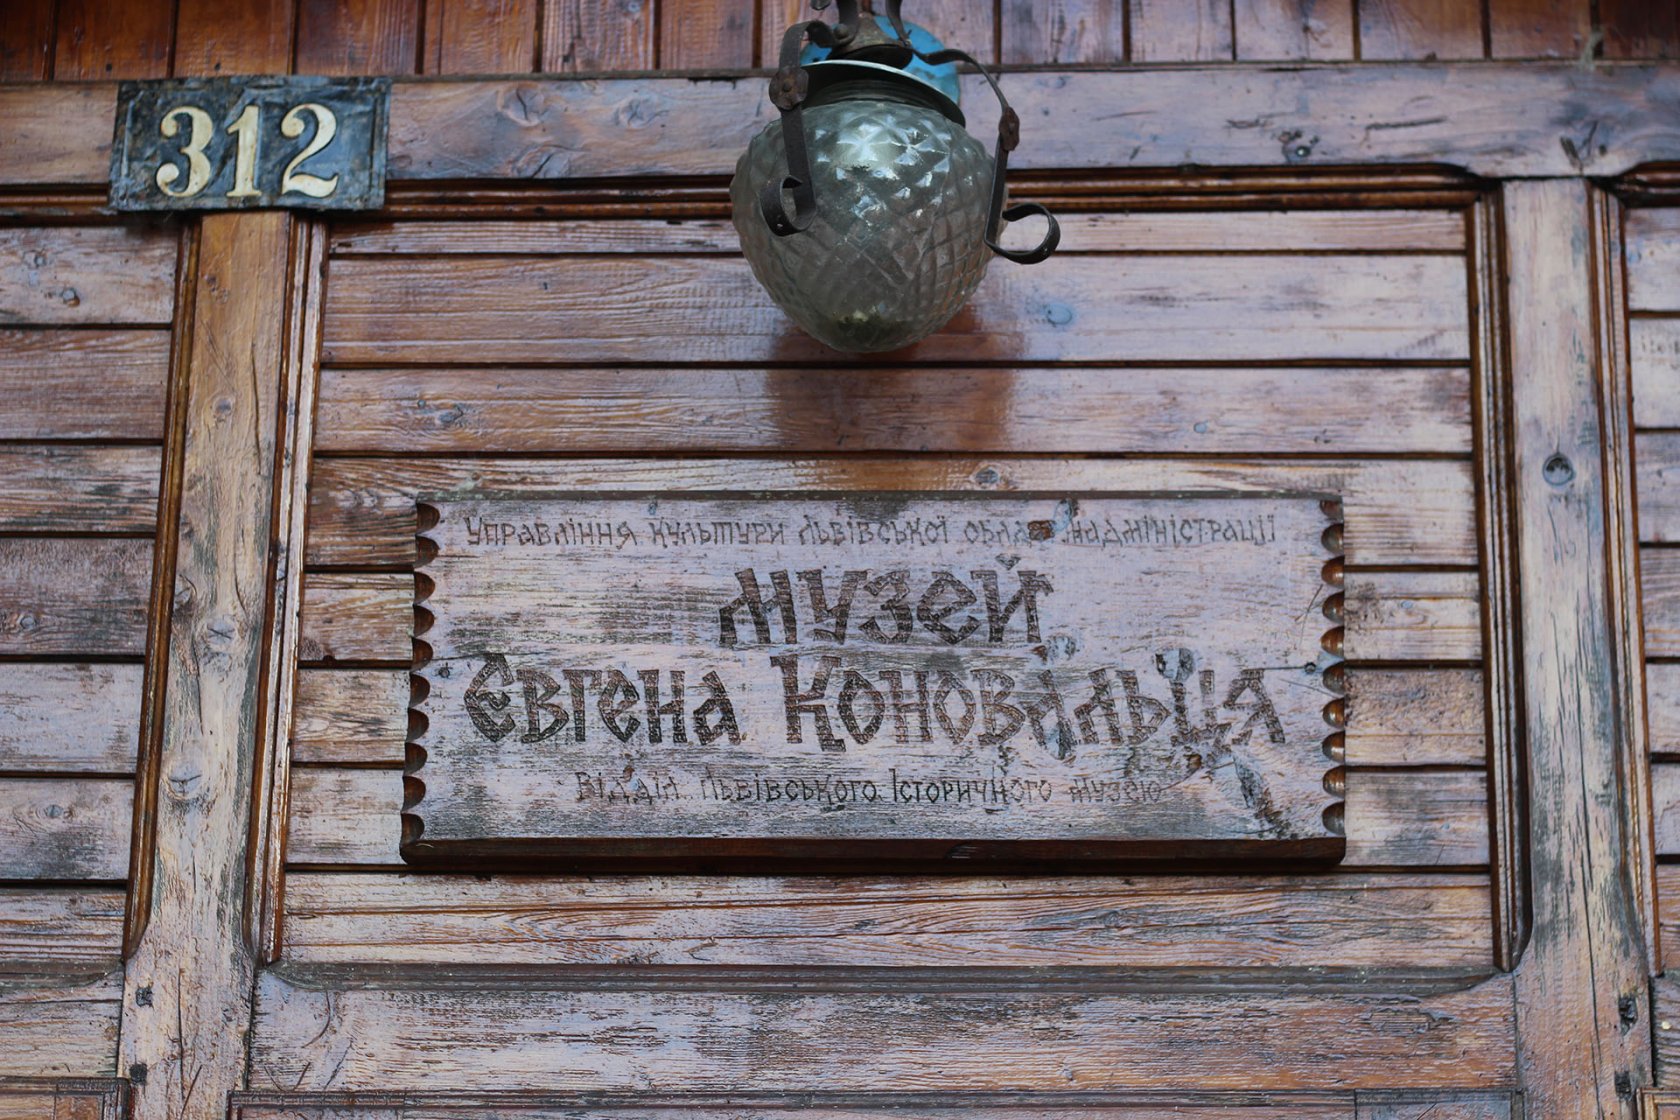 312
Управління культури Львівської облдержадміністрації
Музей
Євгена Коновальця
Відділ Львівського Історичного музею